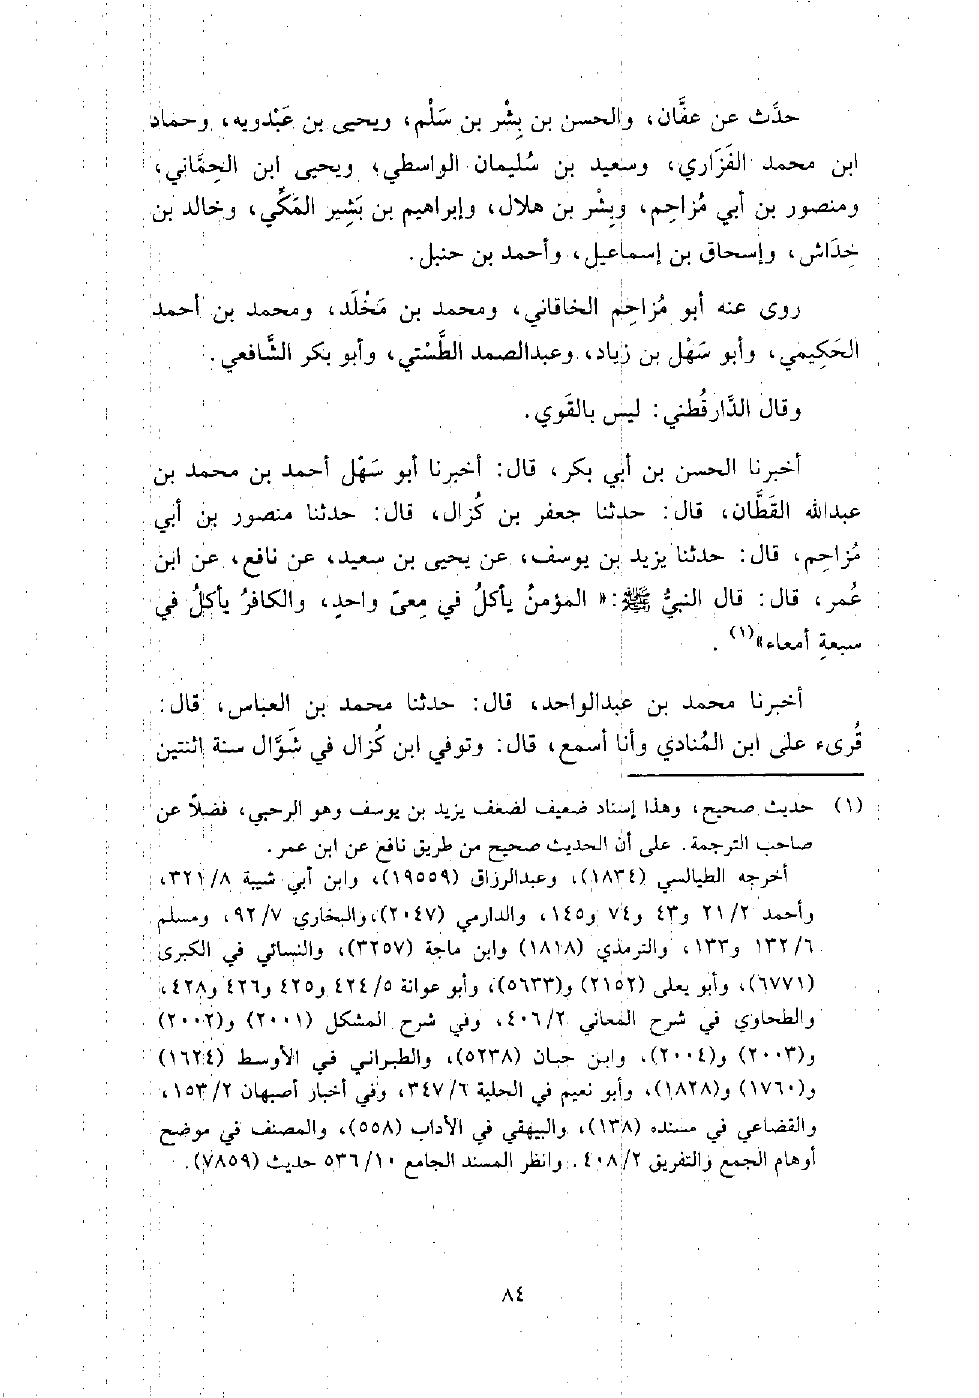 حدَّث عن عفَّان، والحسن بن بِشْر بن سَلْم، ويحيى بن عَبْدويه، وحماد
ابن محمد الفَزَاري، وسعيد بن سُليمان الواسطي، ويحيى ابن الحِمَّاني،
ومنصور بن أبي مُزاحِم، وبِشْر بن هلال، وإبراهيم بن بَشِير المَكِّي، وخالد بن
خِدَاش، وإسحاق بن إسماعيل، وأحمد بن حنبل.
روى عنه أبو مُزاحِم الخاقاني، ومحمد بن مَخْلَد، ومحمد بن أحمد
الحَكِيمي، وأبو سَهْل بن زياد، وعبدالصمد الطَّسْتي، وأبو بكر الشَّافعي.
وقال الدَّارقُطني: ليس بالقَوي.
أخبرنا الحسن بن أبي بكر، قال: أخبرنا أبو سَهْل أحمد بن محمد بن
عبدالله القَطَّان، قال: حدثنا جعفر بن كُزال، قال: حدثنا منصور بن أبي
مُزاحِم، قال: حدثنا يزيد بن يوسف، عن يحيى بن سعيد، عن نافع، عن ابن
عُمر، قال: قال النبيُّ ﷺ: «المؤمنُ يأكلُ في مِعىً واحدٍ، والكافرُ يأكلُ في
سبعةِ أمعاء»(١).
أخبرنا محمد بن عبدالواحد، قال: حدثنا محمد بن العباس، قال:
قُرىء على ابن المُنادي وأنا أسمع، قال: وتوفي ابن كُزال في شَوَّال سنة اثنتين
(١) حديث صحيح، وهذا إسناد ضعيف لضعف يزيد بن يوسف وهو الرحبي، فضلاً عن
صاحب الترجمة. على أن الحديث صحيح من طريق نافع عن ابن عمر.
أخرجه الطيالسي (١٨٣٤)، وعبدالرزاق (١٩٥٥٩)، وابن أبي شيبة ٨/ ٣٢١،
وأحمد ٢/ ٢١ و٤٣ و٧٤ و١٤٥، والدارمي (٢٠٤٧)، والبخاري ٧/ ٩٢، ومسلم
٦/ ١٣٢ و١٣٣، والترمذي (١٨١٨) وابن ماجة (٣٢٥٧)، والنسائي في الكبرى
(٦٧٧١)، وأبو يعلى (٢١٥٢) و(٥٦٣٣)، وأبو عوانة ٥/ ٤٢٤ و٤٢٥ و٤٢٦ و٤٢٨،
والطحاوي في شرح المعاني ٢/ ٤٠٦، وفي شرح المشكل (٢٠٠١) و(٢٠٠٢)
و(٢٠٠٣) و(٢٠٠٤)، وابن حبان (٥٢٣٨)، والطبراني في الأوسط (١٦٢٤)
و(١٧٦٠) و(١٨٢٨)، وأبو نعيم في الحلية ٦/ ٣٤٧، وفي أخبار أصبهان ٢/ ١٥٣،
والقضاعي في مسنده (١٣٨)، والبيهقي في الآداب (٥٥٨)، والمصنف في موضح
أوهام الجمع والتفريق ٢/ ٤٠٨. وانظر المسند الجامع ١٠/ ٥٣٦ حديث (٧٨٥٩).
٨٤